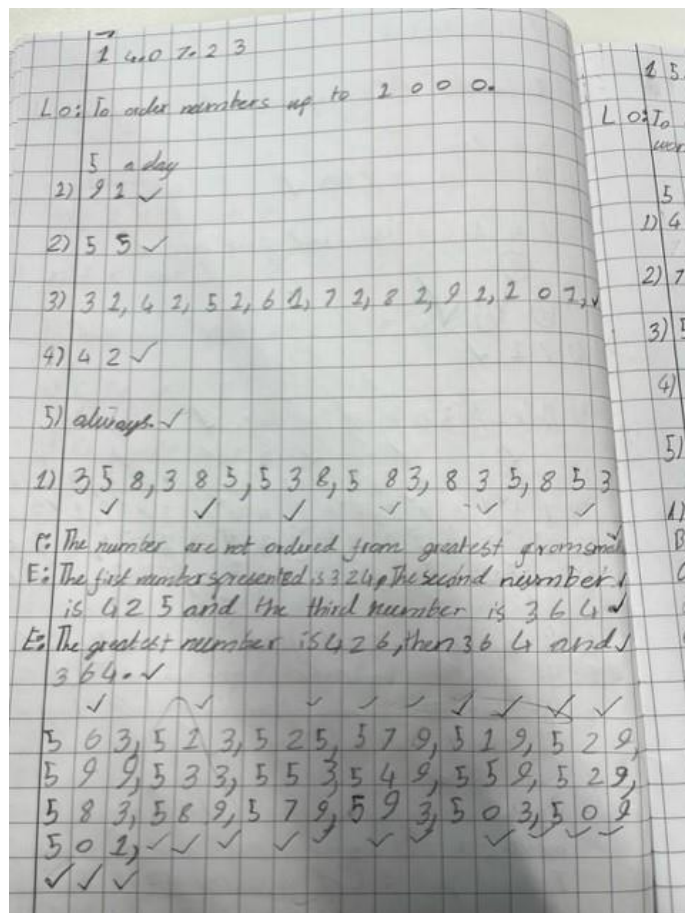 14.07.23
Lo: To order numbers up to 1000.
5 a day
1) 91 ✓
2) 55 ✓
3) 31, 41, 51, 61, 71, 81, 91, 101, ✓
4) 42 ✓
5) always. ✓
1) 358, 385, 538, 583, 835, 853
P: The number are not ordered from greatest
E: The first number presented is 324, The second number
is 425 and the third number is 364
E: The greatest number is 426, then 364 and
364.
563, 513, 525, 579, 519, 529,
599, 533, 553, 549, 559, 529,
583, 589, 579, 593, 503, 509
501,
1 5.
LO: To
5
1) 4
2) 7
3) 5
4)
5)